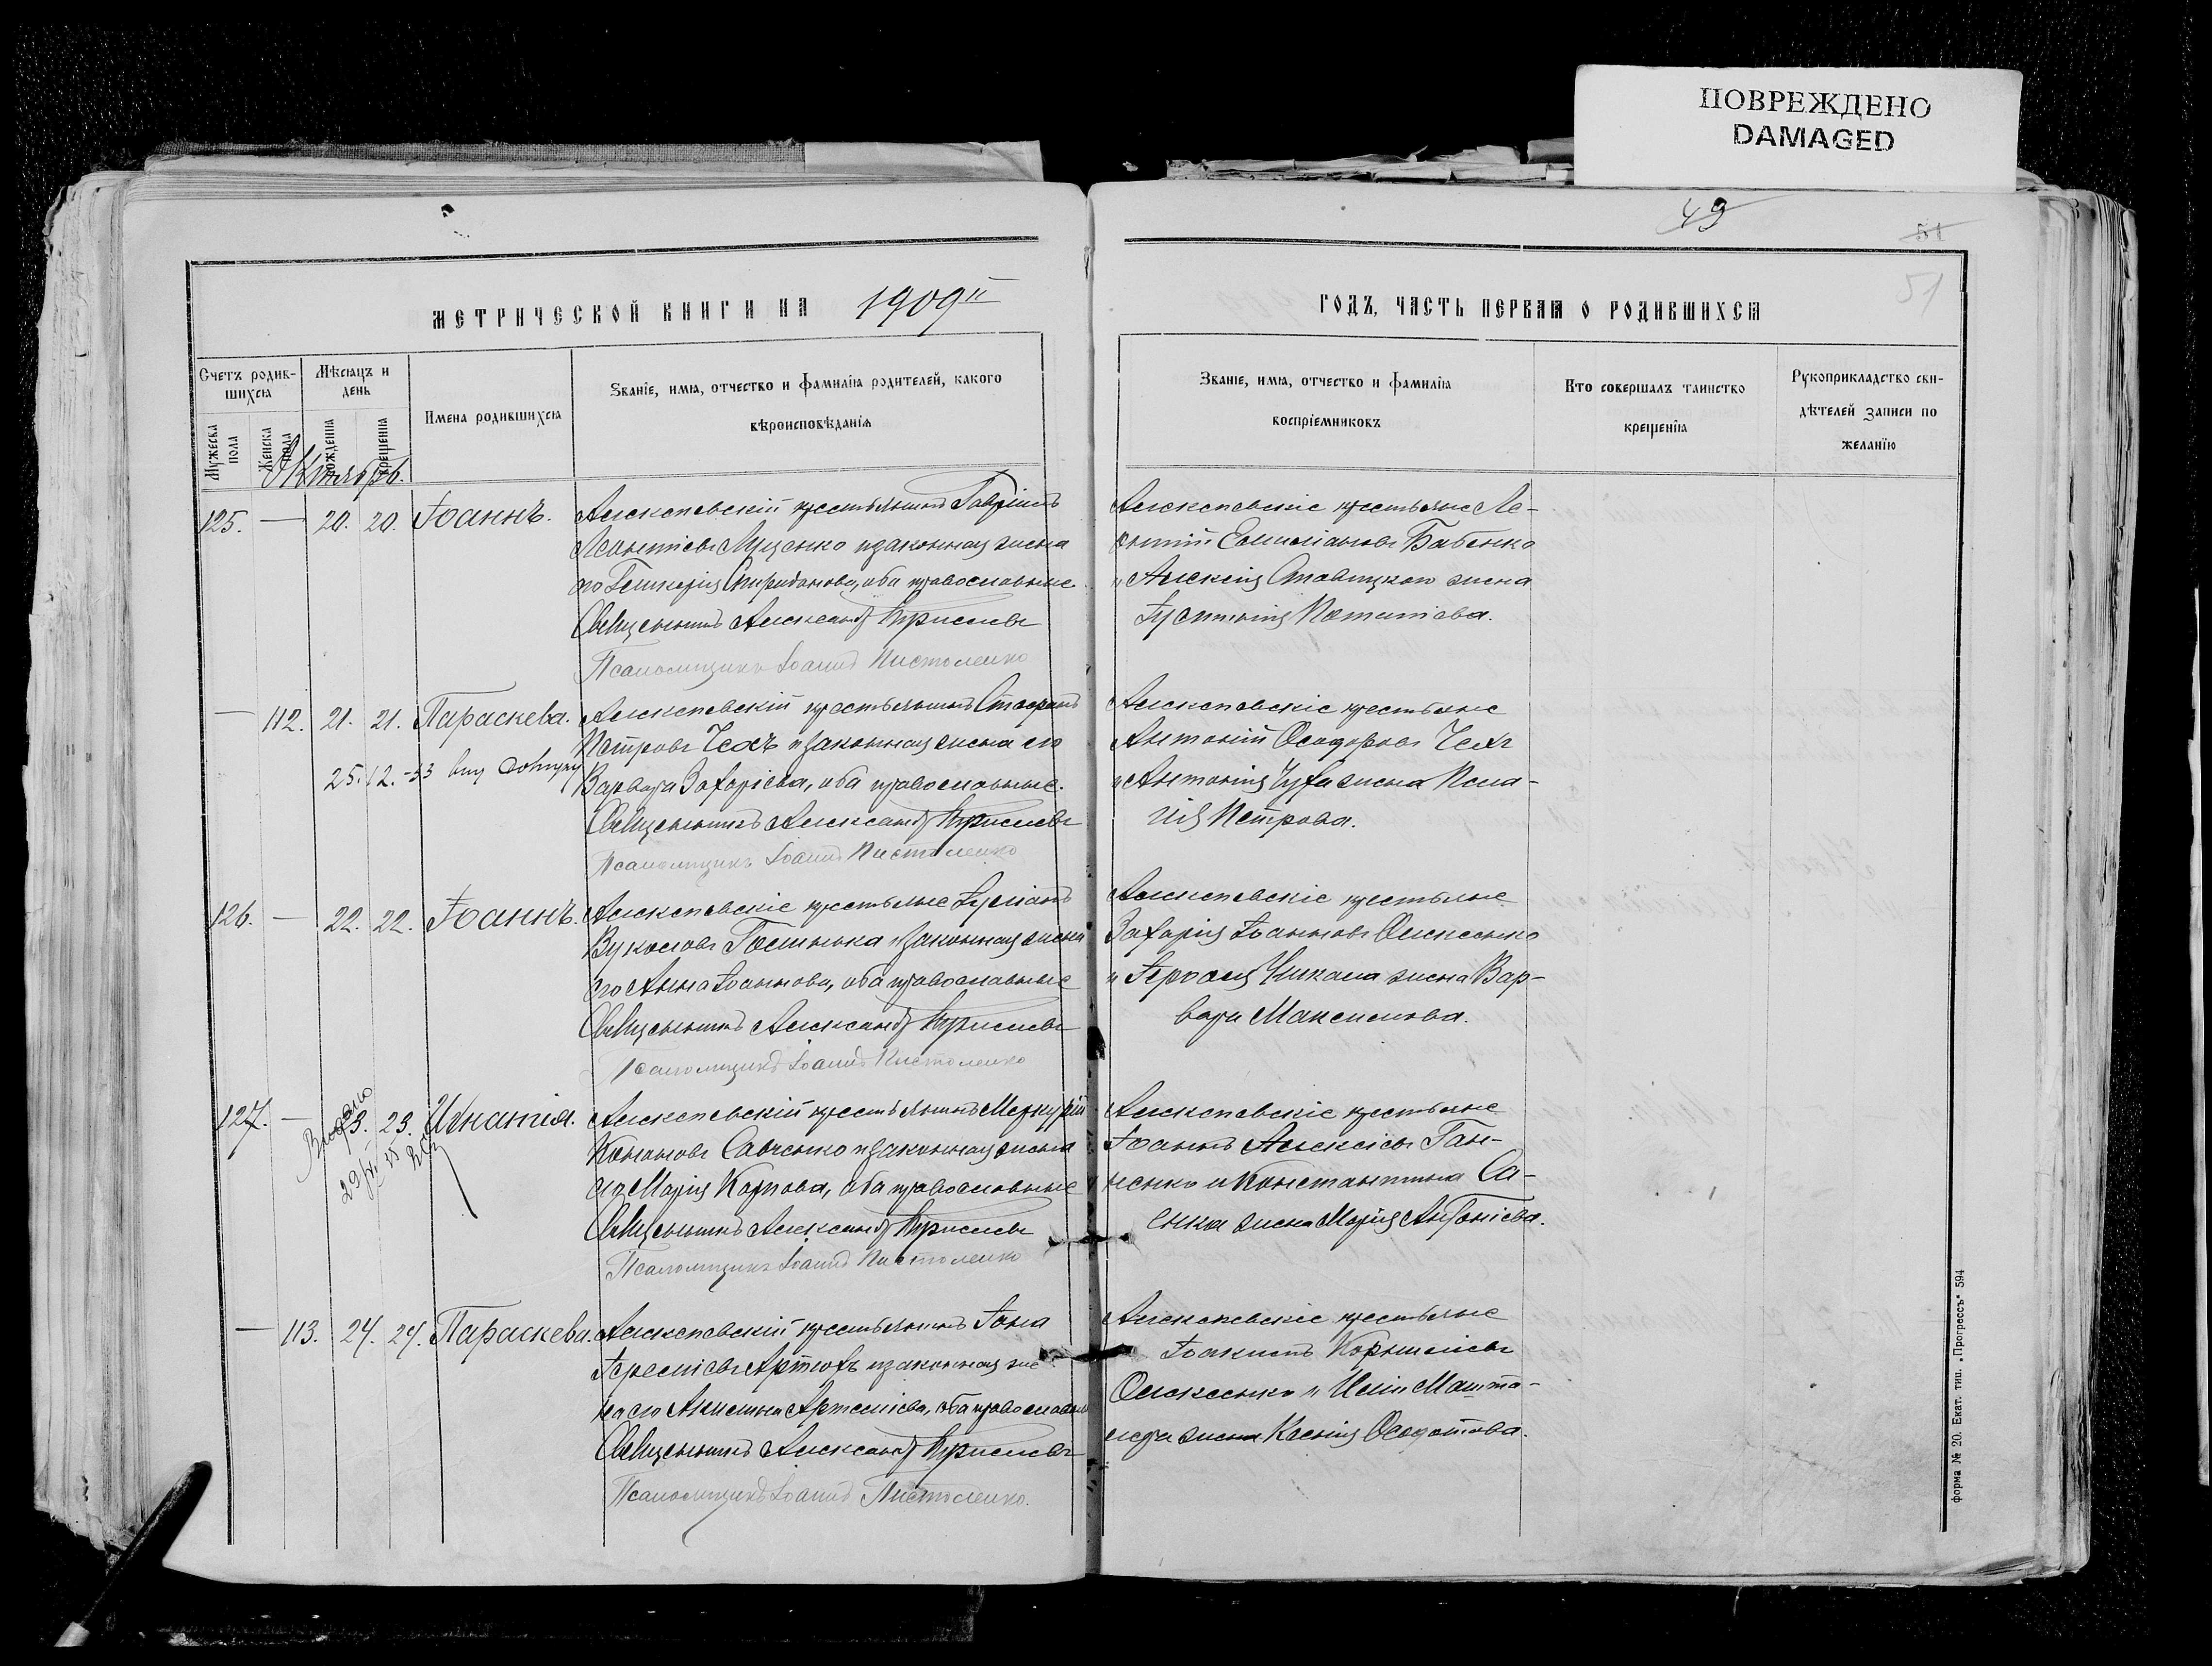 ПОВРЕЖДЕНО
DAMAGED
49
51
51
МЕТРИЧЕСКОЙ КНИГИ НА 1909й
ГОДЪ, ЧАСТЬ ПЕРВАЯ О РОДИВШИХСЯ
Счетъ родившихся
Мужеска пола
Женска пола
Мѣсяцъ и день
рожденія
крещенія
Имена родившихся
Званіе, имя, отчество и фамилія родителей, какого вѣроисповѣданія
Званіе, имя, отчество и фамилія воспріемниковъ
Кто совершалъ таинство крещенія
Рукоприкладство свидѣтелей записи по желанію
Октябрь.
125. — 20. 20. Іоаннъ.
Алексѣевскій крестьянинъ Гавріилъ
Леонтіевъ Луценко и законная жена
его Гликерія Спиридонова, оба православные.
Священникъ Александръ
Псаломщикъ Іоаннъ Пистоленко
Алексѣевскіе крестьяне Ле-
онтій Емиліановъ Бабенко
и Алексія жена
Потапіева.
— 112. 21. 21. Параскева.
25.12.-53
Алексѣевскій крестьянинъ
Петровъ Чехъ и законная жена его
Варвара Захаріева, оба православные.
Священникъ Александръ
Псаломщикъ Іоаннъ Пистоленко
Алексѣевскіе крестьяне
Антоній Ѳеодоровъ Чехъ
и Антонія жена Пела-
гія Петрова.
126. — 22. 22. Іоаннъ.
Алексѣевскіе крестьяне
Вуколовъ и законная жена
его Анна Іоаннова, оба православные
Священникъ Александръ
Псаломщикъ Іоаннъ Пистоленко
Алексѣевскіе крестьяне
Захарія Іоанновъ Олексенко
и жена Вар-
вара Максимова.
127. — 23. 23. Игнатія.
Алексѣевскій крестьянинъ Меркурій
Кононовъ Савченко и законная жена
его Марія Карпова, оба православные
Священникъ Александръ
Псаломщикъ Іоаннъ Пистоленко
Алексѣевскіе крестьяне
Іоаннъ Алексіевъ Ган-
ненко и Константина Са-
енка жена Марія Антоніева.
— 113. 24. 24. Параскева.
Алексѣевскій крестьянинъ Іона
Артюхъ и законная же-
на его Акилина Артеміева, оба православные
Священникъ Александръ
Псаломщикъ Іоаннъ Пистоленко.
Алексѣевскіе крестьяне
Іоакимъ Корниліевъ
Олексенко и Иліи Машта-
лера жена Ксенія Ѳеодотова.
форма № 20. Екат. тип. „Прогрессъ“ 594